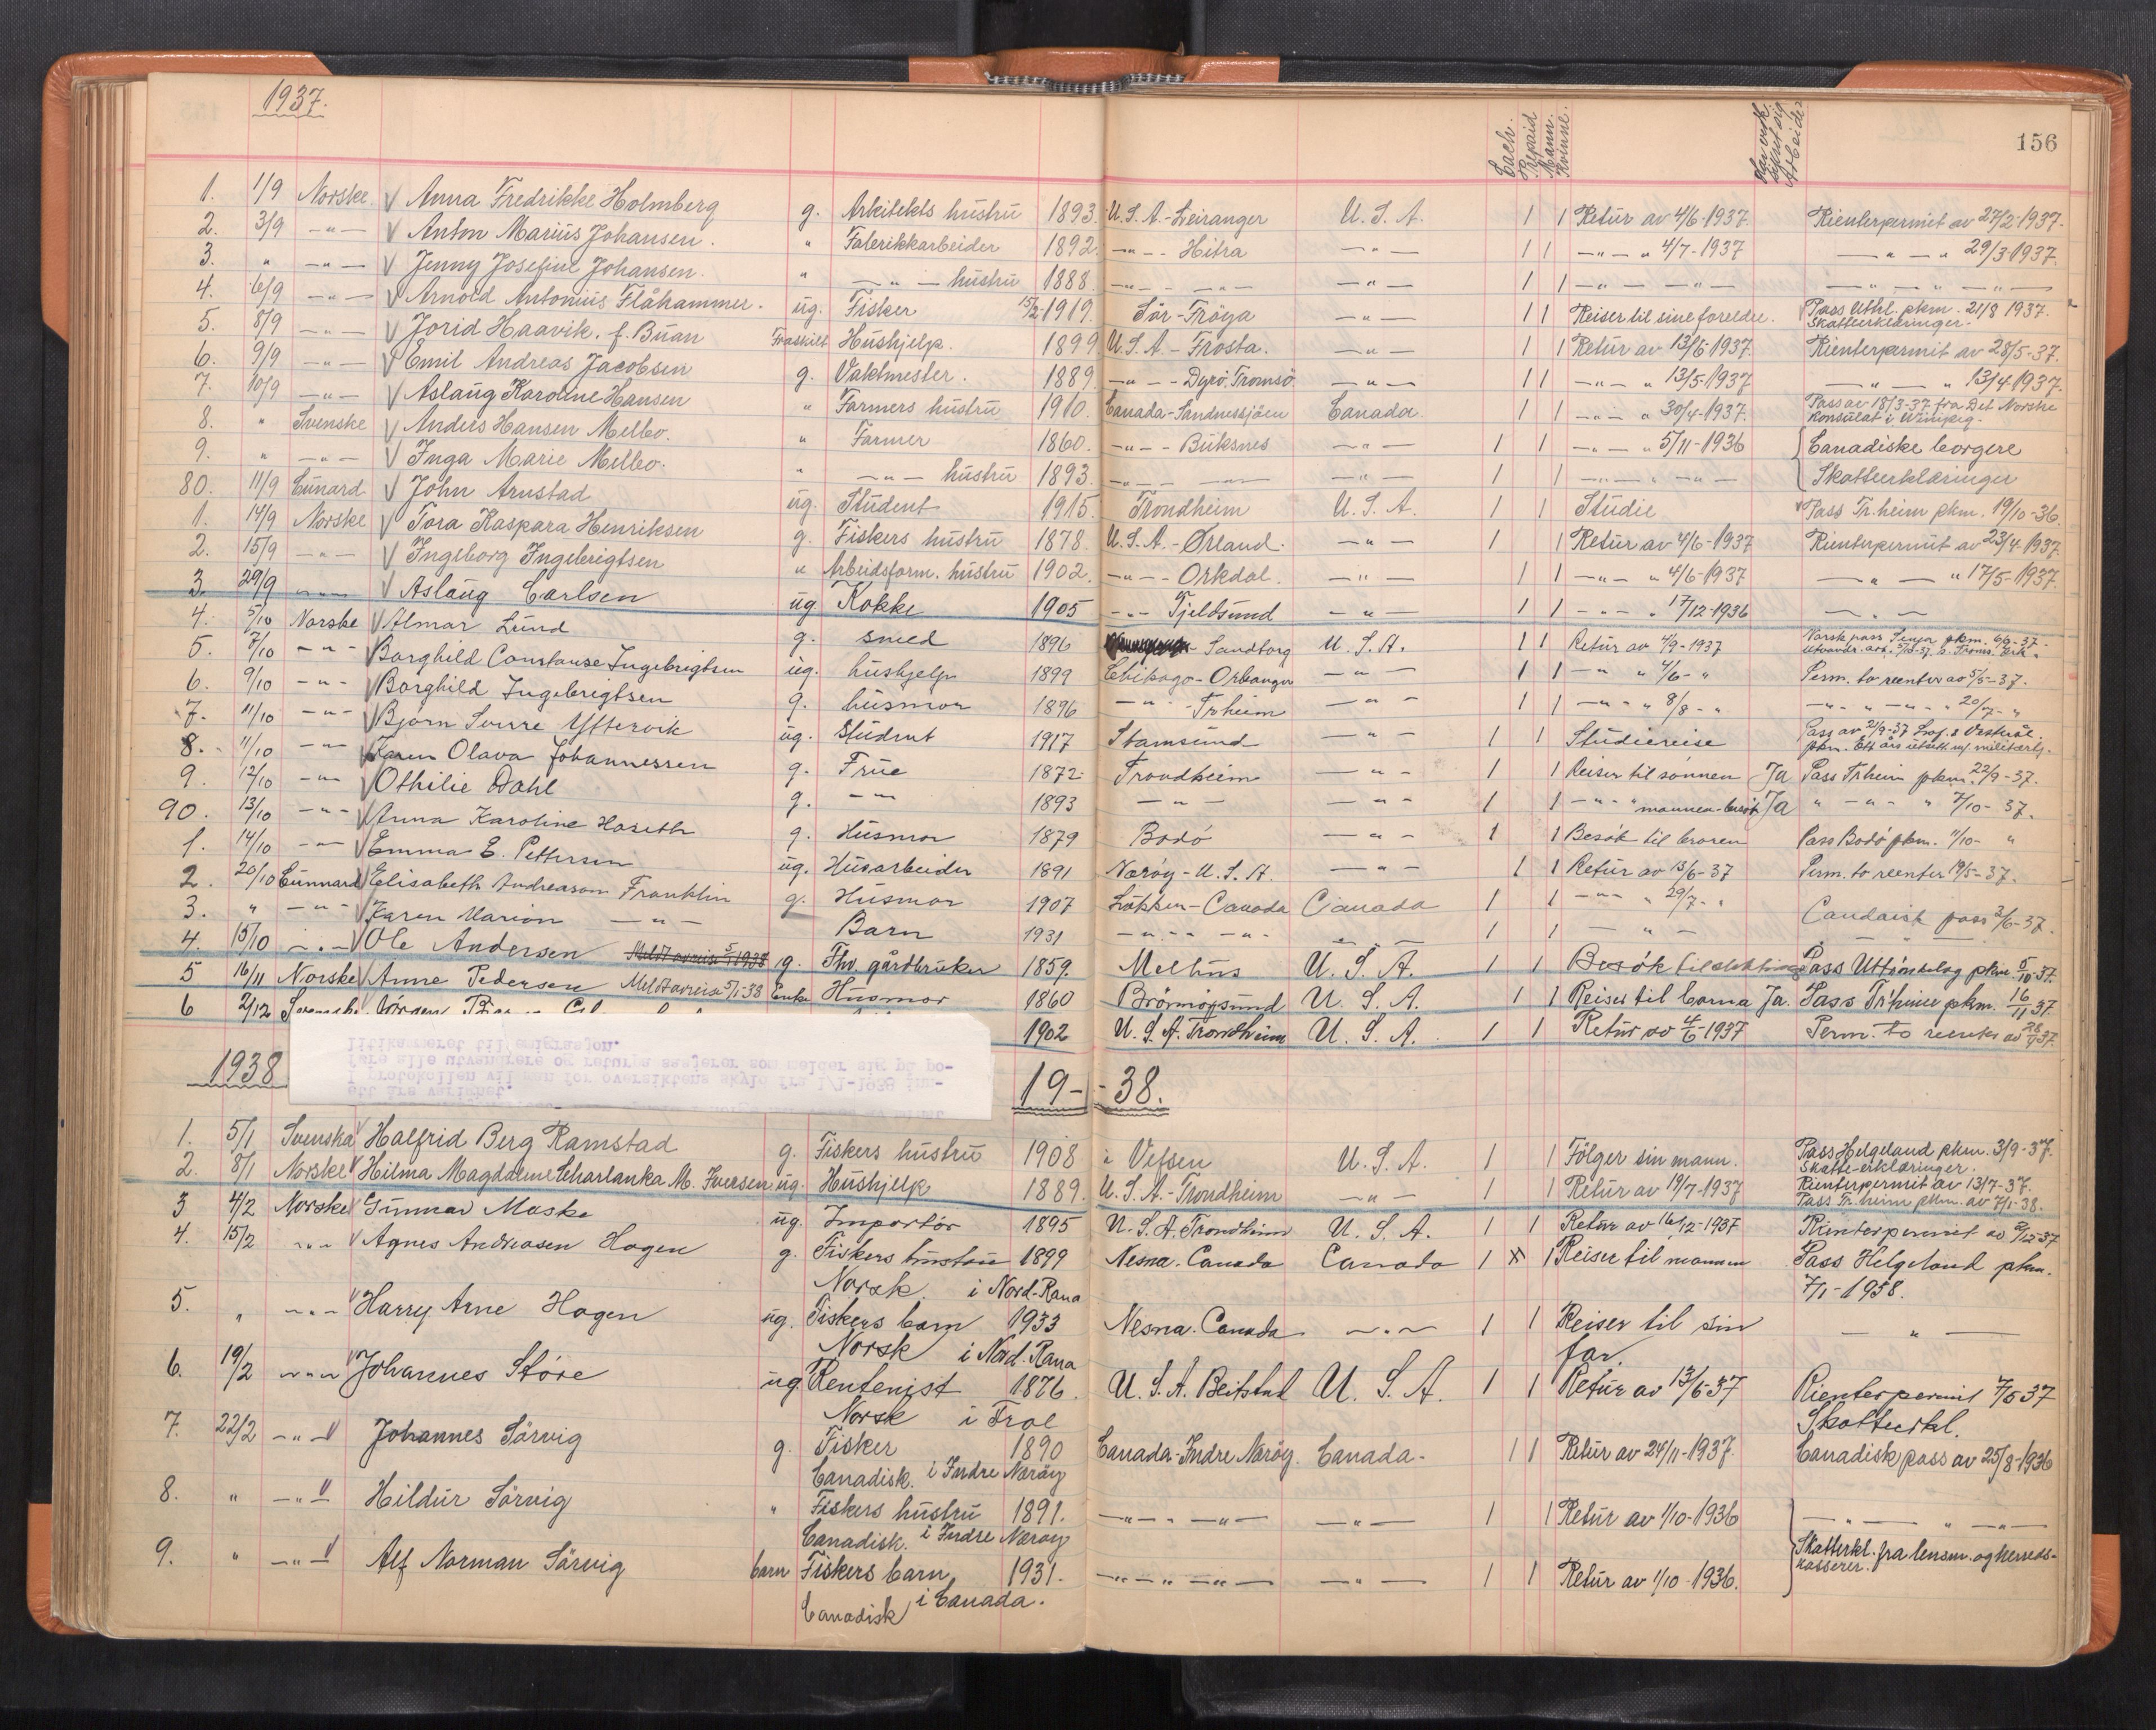 1937.
Cach. Prepaid Mann. Kvinne. Arbeider
156
1. 1/9 Norske √ Anna Fredrikke Holmberg g. Arkitekts hustru 1893. U.S.A.-Leiranger U.S.A. 1 1 Retur av 4/6-1937. Rienterpermit av 27/2-1937.
2. 3/9 -"- √ Anton Marius Johansen. " Fabrikkarbeider 1892. -"- - Hitra -"- 1 1 -"- " 4/7-1937 -"- " 29/3 1937.
3. " -"- √ Jenny Josefine Johansen. " -"- hustru 1888. -"- - -"- -"- 1 1 -"- -"- -"- " -"-
4. 6/9 -"- √ Arnold Antonius Flåhammer. ug. Fisker 15/2-1919. Sör-Fröya -"- 1 1 Reiser til sine foreldre. Pass Uthl. pkm. 21/8 1937.
Skatteerklæringer.
5. 8/9 -"- √ Jorid Haavik. f. Buan Fraskilt Hushjelp. 1899 U.S.A-Frosta. -"- 1 1 Retur av 13/6-1937. Rienterpermit av 28/5-37.
6. 9/9 -"- √ Emil Andreas Jacobsen g. Vaktmester. 1889. -"- - Dyrö. Tromsö. -"- 1 1 -"- " 13/5-1937 -"- " 13/4 1937.
7. 10/9 -"- √ Aslaug Karoline Hansen " Farmers hustru 1910. Canada-Sandnessjöen Canada 1 1 -"- " 30/4-1937. Pass av 18/3-37 fra Det Norske
Konsulat i Winipeg.
8. " Svenske √ Anders Hansen Melbo. " Farmer 1860. -"- - Buksnes -"- 1 1 -"- " 5/11-1936 Canadiske borgere
9. " -"- √ Inga Marie Melbo. " -"- hustru 1893. -"- -"- -"- 1 1 -"- " -"- Skatteerklæringer
80. 11/9 Cunard √ John Arnstad ug. Student 1915. Trondheim U.S.A. 1 1 Studie Pass Tr.heim pkm. 19/10-36.
1. 14/9 Norske √ Tora Kaspara Henriksen g. Fiskers hustru 1878. U.S.A.-Ørland. -"- 1 1 Retur av 4/6-1937 Rienterpermit av 23/4-1937.
2. 15/9 -"- √ Ingeborg Ingebrigtsen " Arbeidsform. hustru 1902. -"- - Orkdal. -"- 1 1 -"- " 4/6-1937 -"- " 17/5-1937.
3. 29/9 -"- √ Aslaug Carlsen ug Kokke 1905 -"- Tjeldsund -"- 1 1 -"- " 17/12-1936 -"-
4. 5/10 Norske √ Almar Lund g. smed 1896 - Sandtorg U.S.A. 1 1 Retur av 4/9-1937 Norsk pass Senja pkm. 6/9-37.
5. 7/10 -"- √ Borghild Constanse Ingebrigtsen ug. hushjelp 1899 Chikago-Orkanger -"- 1 1 -"- " 4/6-" Perm. to reenter av 5/5-37.
6. 9/10 -"- √ Borghild Ingebrigtsen g. husmor 1896 -"- - Trheim -"- 1 1 -"- " 8/8-" -"- " -"- " 20/7-"
7. 11/10 -"- √ Bjørn Sverre Yttervik ug. Student 1917 Stamsund -"- 1 1 Studiereise Pass av 21/9-37 Lof. & Vesterål.
pkm. Ett års utsett m/ militærtj.
8. 11/10 -"- √ Karen Olava Johannessen g. Frue 1872. Trondheim -"- 1 1 Reiser til sønnen Ja Pass Trheim pkm. 22/9-37.
9. 12/10 -"- √ Othilie Dahl g. -"- 1893 -"- -"- 1 1 -"- " mannen-besøk Ja " -"- " 7/10-37.
90. 13/10 -"- √ Anna Karoline Haseth g. Husmor 1879 Bodö -"- 1 1 Besök til broren Pass Bodö pkm. 11/10- "
1. 14/10 -"- √ Emma E. Pettersen ug. Husarbeider 1891 Nærøy-U.S.A. -"- 1 1 Retur av 13/6-37 Perm. to reenter 19/5-37.
2. 20/10 Cunnard √ Elisabeth Andreason Franklin g. Husmor 1907 Løkken-Canada Canada 1 1 -"- " 29/7-" Candaisk pass 2/6-37.
3. " -"- √ Karen Marion -"- Barn 1931 -"- - -"- -"- 1 1 -"-
4. 15/10 -"- √ Ole Andersen Meldt avreise 5/1 1938 g. Fhv. gårdbruker 1859. Melhus U.S.A. 1 1 Besök til slektninger Pass Uttrøndelag pkm. 5/10 37.
5 16/11 Norske √ Anne Pedersen Meldt avreise 5/1-38 Enke Husmor 1860 Brönnöysund U.S.A. 1 1 Reiser til barna Ja. Pass Tr'heim pkm. 16/11 37.
6 2/12 1902 U.S.A. Trondheim U.S.A. 1 1 Retur av 4/6-1937 Perm. to reenter av 28/4 37.
1938 19--38.
litikammeret til emigrasjon.
føre alle utvandrere og returpassasjerer som melder sig på po-
I protokollen vil man for oversiktens skyld fra 1/1-1938 inn-
ett års varighet.
1. 5/1 Svenska √ Halfrid Berg Ramstad g. Fiskers hustru 1908 i Vefsen U.S.A. 1 1 Fölger sin mann. Pass Helgeland pkm. 3/9-37.
Skatte-erklæringer.
2. 8/1 Norske √ Hilma Magdalene Scharlanka M. Iversen ug. Hushjelp 1889. U.S.A-Trondheim -"- 1 1 Retur av 19/7-1937 Rienterpermit av 13/7-37.
Pass Tr.heim pkm. av 7/1-38.
3 4/2 Norske √ Gunnar Moske ug. Importör 1895 U.S.A. Trondheim U.S.A. 1 1 Retur av 16/12-1937 Rienterpermit av 2/12-37
4. 15/2 -"- √ Agnes Andreasen Hagen g. Fiskers hustru 1899 Nesna. Canada Canada 1 x 1 Reiser til mannen Pass Helgeland pkm.
Norsk. i Nord-Rana 7/1-1938.
5. " -"- √ Harry Arne Hagen ug. Fiskers barn 1933 Nesna. Canada -"- 1 1 Reiser til sin -"-
Norsk i Nord. Rana far.
6. 19/2 -"- √ Johannes Støre ug Rentenist 1876. U.S.A. Beitstad U.S.A. 1 1 Retur av 13/6-37 Rienterpermit 7/5 37
Norsk i Skatteerkl.
7. 22/2 -"- √ Johannes Sörvig g. Fisker 1890 Canada-Indre Næröy. Canada. 1 1 Retur av 24/11-1937. Canadisk pass av 25/8-1936
Canadisk. i Indre Næröy
8. " -"- √ Hildur Sörvig " Fiskers hustru 1891. -"- - -"- -"- 1 1 Retur av 1/10-1936 -"- " -"-
Canadisk. i Indre Næröy
9. " -"- √ Alf Norman Sörvig barn Fiskers barn 1931. -"- " -"- -"- 1 1 Retur av 1/10-1936. Skatterkl. fra lensm. og herreds-
kasserer.
Canadisk i Canada.